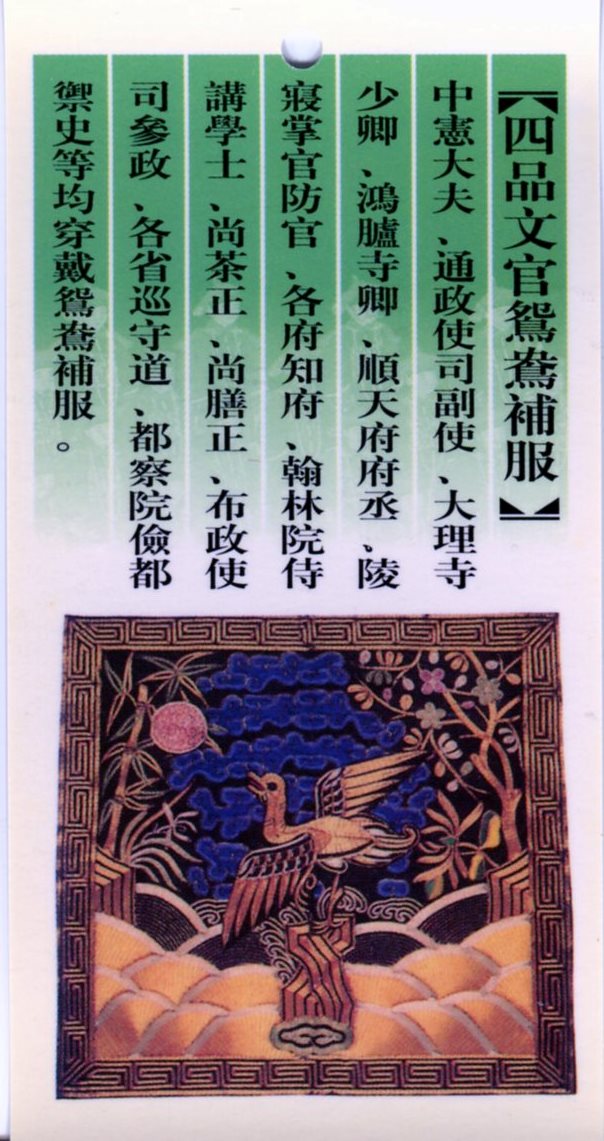 【四品文官鴛鴦補服】
中憲大夫、通政使司副使、大理寺
少卿、鴻臚寺卿、順天府府丞、陵
寢掌官防官、各府知府、翰林院侍
講學士、尚茶正、尚膳正、布政使
司參政、各省巡守道、都察院儉都
禦史等均穿戴鴛鴦補服。